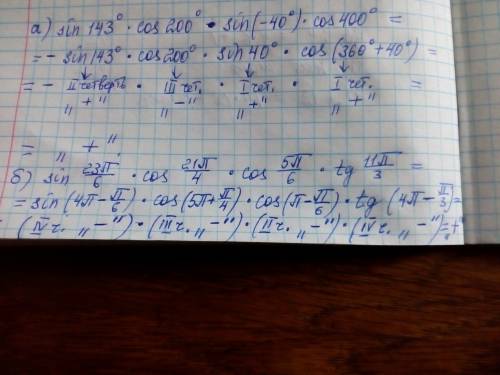 а) sin 143° · cos 200° · sin(-40°) · cos 400° =
= - sin 143° · cos 200° · sin 40° · cos (360° + 40°) =
= - II четверть · III чет. · I чет. · I чет. =
„ + " „ - " „ + " „ + "
= „ + ".
б) sin 23π/6 · cos 21π/4 · cos 5π/6 · tg 11π/3 =
= sin(4π - π/6) · cos(5π + π/4) · cos(π - π/6) · tg (4π - π/3) =
(IV ч. „ - ") · (III ч. „ - ") · (II ч. „ - ") · (IV ч. „ - ") = „ + "